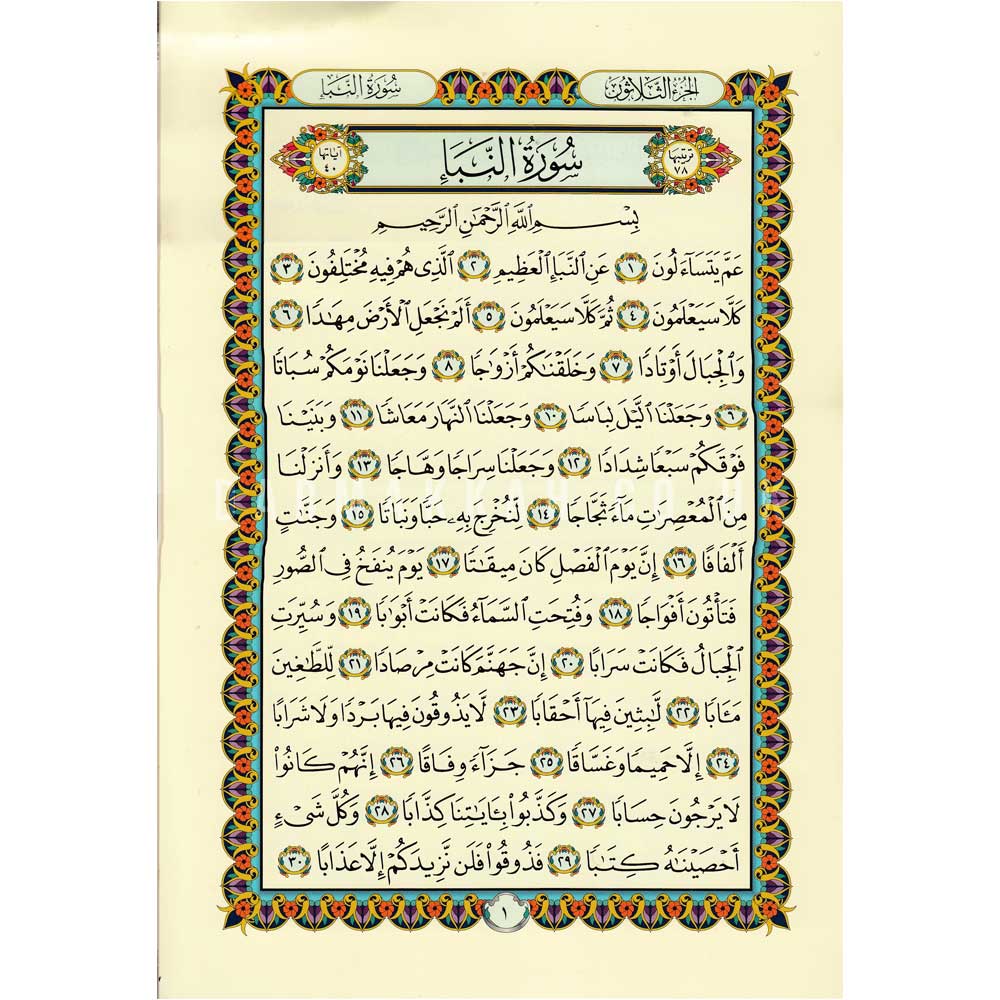 الجزء الثلاثون
سورة النبإ
ترتيبها
٧٨
سُورَةُ النَّبَإِ
آياتها
٤٠
بِسْمِ ٱللَّهِ ٱلرَّحْمَٰنِ ٱلرَّحِيمِ
عَمَّ يَتَسَآءَلُونَ ١ عَنِ ٱلنَّبَإِ ٱلْعَظِيمِ ٢ ٱلَّذِى هُمْ فِيهِ مُخْتَلِفُونَ ٣
كَلَّا سَيَعْلَمُونَ ٤ ثُمَّ كَلَّا سَيَعْلَمُونَ ٥ أَلَمْ نَجْعَلِ ٱلْأَرْضَ مِهَٰدًا ٦
وَٱلْجِبَالَ أَوْتَادًا ٧ وَخَلَقْنَٰكُمْ أَزْوَٰجًا ٨ وَجَعَلْنَا نَوْمَكُمْ سُبَاتًا
٩ وَجَعَلْنَا ٱلَّيْلَ لِبَاسًا ١٠ وَجَعَلْنَا ٱلنَّهَارَ مَعَاشًا ١١ وَبَنَيْنَا
فَوْقَكُمْ سَبْعًا شِدَادًا ١٢ وَجَعَلْنَا سِرَاجًا وَهَّاجًا ١٣ وَأَنزَلْنَا
مِنَ ٱلْمُعْصِرَٰتِ مَآءً ثَجَّاجًا ١٤ لِّنُخْرِجَ بِهِۦ حَبًّا وَنَبَاتًا ١٥ وَجَنَّٰتٍ
أَلْفَافًا ١٦ إِنَّ يَوْمَ ٱلْفَصْلِ كَانَ مِيقَٰتًا ١٧ يَوْمَ يُنفَخُ فِى ٱلصُّورِ
فَتَأْتُونَ أَفْوَاجًا ١٨ وَفُتِحَتِ ٱلسَّمَآءُ فَكَانَتْ أَبْوَٰبًا ١٩ وَسُيِّرَتِ
ٱلْجِبَالُ فَكَانَتْ سَرَابًا ٢٠ إِنَّ جَهَنَّمَ كَانَتْ مِرْصَادًا ٢١ لِّلطَّٰغِينَ
مَـَٔابًا ٢٢ لَّٰبِثِينَ فِيهَآ أَحْقَابًا ٢٣ لَّا يَذُوقُونَ فِيهَا بَرْدًا وَلَا شَرَابًا
٢٤ إِلَّا حَمِيمًا وَغَسَّاقًا ٢٥ جَزَآءً وِفَاقًا ٢٦ إِنَّهُمْ كَانُوا۟
لَا يَرْجُونَ حِسَابًا ٢٧ وَكَذَّبُوا۟ بِـَٔايَٰتِنَا كِذَّابًا ٢٨ وَكُلَّ شَىْءٍ
أَحْصَيْنَٰهُ كِتَٰبًا ٢٩ فَذُوقُوا۟ فَلَن نَّزِيدَكُمْ إِلَّا عَذَابًا ٣٠
١